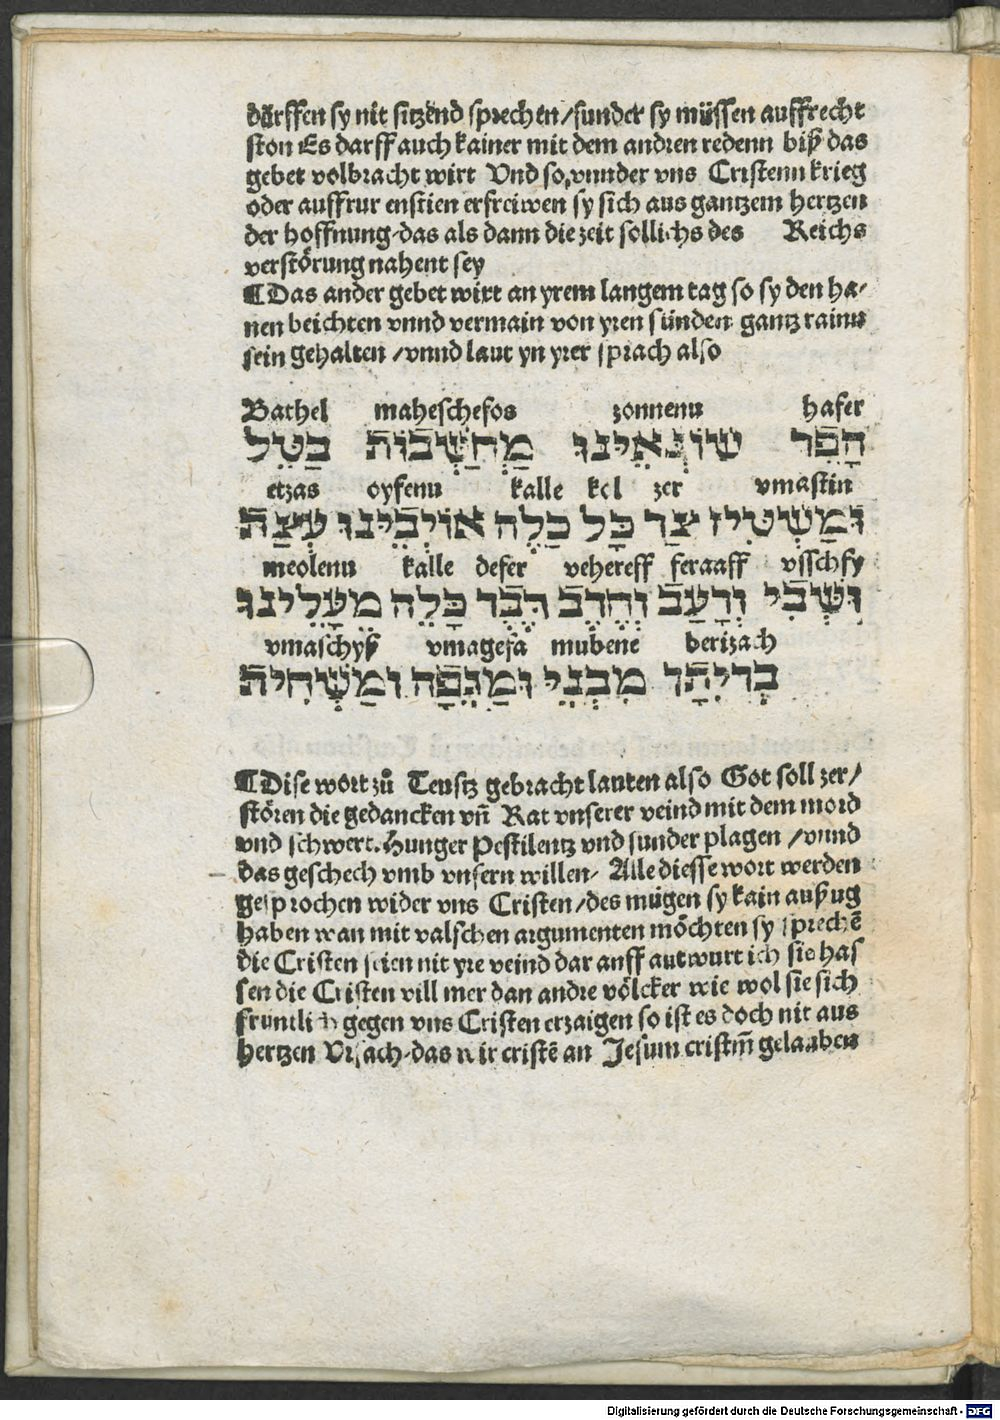 dörffen sy nit sitzend sprechen/sunder sy müssen auffrecht
ston Es darff auch kainer mit dem andren redenn biß das
gebet volbracht wirt Vnd so vnnder vns Cristenn krieg
oder auffrur enstien erfreiwen sy sich aus gantzem hertzen
der hoffnung das als dann die zeit sollichs des Reichs
verstörung nahent sey
¶Das ander gebet wirt an yrem langem tag so sy den ha/
nen beichten vnnd vermain von yren sünden gantz rainn
sein gehalten /vnnd laut yn yrer sprach also
Bathel maheschefos zonnenu hafer
הָפֵר שׂוֹנְאֵינוּ מַחְשְׁבוֹת בַטֵל
etzas oyfenu kalle kel zer vmastin
וּמַשְׂטִין צַר כָּל כַלֵה אוֹיְבֵינוּ עֲצַת
meolenu kalle defer vehereff feraaff vsschfy
וּשְׁבִי וְרָעָב וְחֶרֶב דֶבֶר כַּלֵה מֵעָלֵינוּ
vmaschyß vmagefa mubene berizach
בְרִיתָךְ מִבְּנֵי וּמַגֵפָה וּמַשְׁחִית
¶Dise wort zů Teustz gebracht lauten also Got soll zer/
stören die gedancken vñ Rat vnserer veind mit dem mord
vnd schwert. Hunger Pestilentz vnd sunder plagen /vnnd
das geschech vmb vnsern willen/ Alle diesse wort werden
gesprochen wider vns Cristen/des mügen sy kain außug
haben wan mit valschen argumenten möchten sy sprechē
die Cristen seien nit yre veind dar auff antwurt ich sie has
sen die Cristen vill mer dan andre völcker wie wol sie sich
fruntlich gegen vns Cristen erzaigen so ist es doch nit aus
hertzen Vrsach das wir cristē an Jesum cristm̄ gelauben
Digitalisierung gefördert durch die Deutsche Forschungsgemeinschaft - DFG